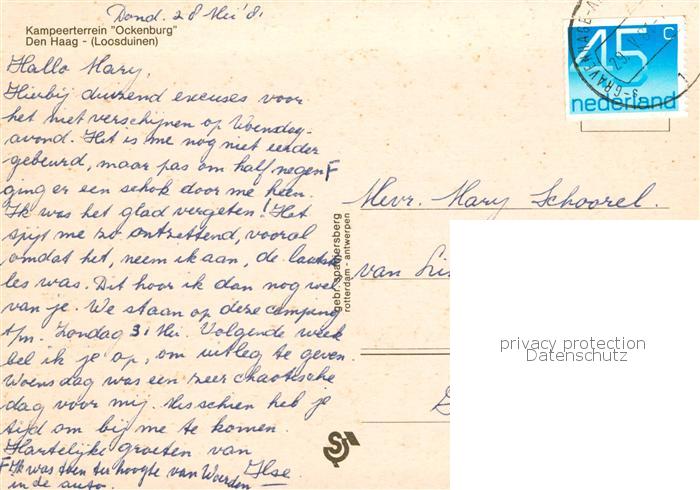 Dond. 28 Mei '81
Kampeerterrein "Ockenburg"
Den Haag - (Loosduinen)
Hallo Mary,
Hierbij duizend excuses voor
het niet verschijnen op Woensdag-
avond. Het is me nog niet eerder
gebeurd, maar pas om half negen F
ging er een schok door me heen.
Ik was het glad vergeten! Het
spijt me zo ontzettend, vooral
omdat het, neem ik aan, de laatste
les was. Dit hoor ik dan nog wel
van je. We staan op deze camping
t/m. Zondag 31 Mei. Volgende week
bel ik je op, om uitleg te geven.
Woensdag was een zeer chaotische
dag voor mij. Misschien heb je
tijd om bij me te komen.
Hartelijke groeten van
Ilse
F Ik was toen ter hoogte van Woerden
in de auto.
gebr. spanjersberg
rotterdam - antwerpen
45 c
nederland
's-GRAVENHAGE
Mevr. Mary Schoorel.
van
privacy protection
Datenschutz